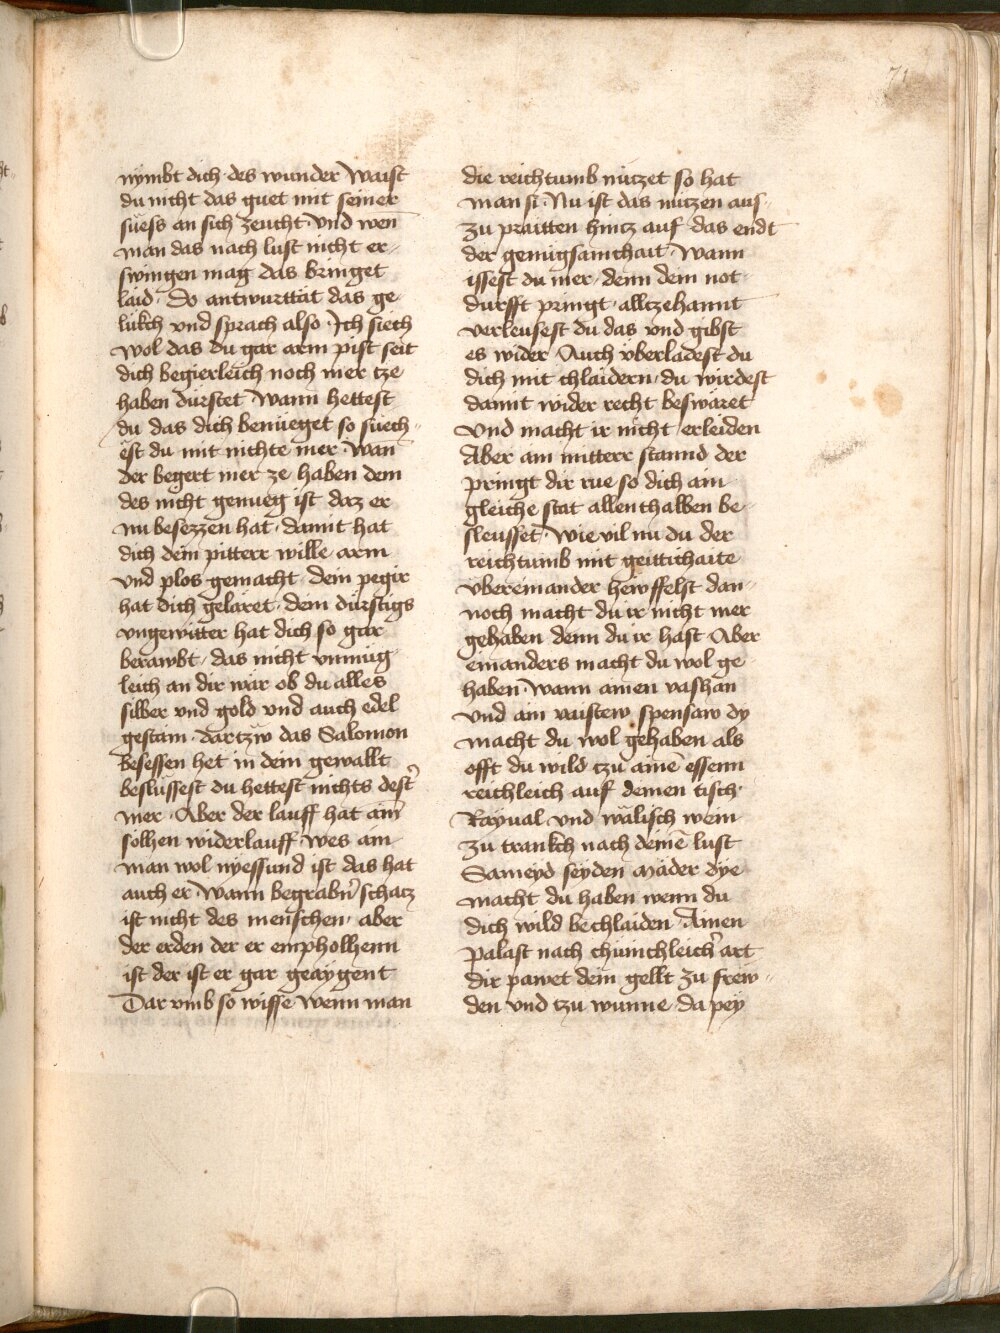 71
nymbt dich · des wunder Waist
du nicht das guet mit seiner
suess an sich zeucht Vnd wen̄
man das nach lust nicht er-
swingen mag das bringet
laid · Do antwurttat das ge-
lukch vnd sprach also · Ich siech
wol das du gar arm pist seit
dich begierleich noch mer tze
haben dürstet Wann hettest
du das dich benüeget so suech-
est du mit nichte mer · Wan̄
der begert mer ze haben dem
des nicht genueg ist daz er
nu besezzen hat · damit hat
dich dein pitterr wille arm
vnd plos gemacht · dein pegir
hat dich geläret · dein dürstigs
vngewitter hat dich so gar
berawbt · das nicht vnmüg-
leich an dir wär ob du alles
silber vnd gold vnd auch edel
gestain · dartzw das Salomon
besessen het in dein gewallt
beslüssest du hettest nichts dest̄
mer · Aber der lauff hat ain̄
solhen widerlauff · wes ain
man wol nyessund ist das hat
auch er · Wann begrabn̄ schatz
ist nicht des menschen · aber
der erden der er empholhenn
ist der ist er gar geaygent
Dar vmb so wisse wenn man
die reichtumb nutzet so hat
man si · Nu ist das nutzen aus-
zu praitten hintz auf das endt
der genügsamchait · Wann
issest du mer · denn dein not-
durfft pringt · alltzehannt
verleusest du das vnd gibst
es wider Auch überladest du
dich mit chlaidern · du wirdest
damit wider recht beswäret
Vnd macht ir nicht erleiden
Aber ain mitterr stannd der
pringt dir rue so dich ain
gleiche stat allenthalben be-
sleusset · Wie vil nu du der
reichtumb mit geittichaite
übereinander hewffelst dan-
noch macht du ir nicht mer
gehaben denn du ir hast Aber
ein anders macht du wol ge-
haben · Wann ainen vashan
vnd ain vaistew spensaw dy
macht du wol gehaben als
offt du wild tzu aine᷑ essenn
reichleich auf deinen tisch ·
Rayual vnd wälisch wein
zu trankch nach deine᷑ lust
Sameyd seyden mäder dye
macht du haben wenn du
dich wild bechlaiden · Ainen
palast nach chünichleich̄ art
dir pawet dein gellt zu frew-
den vnd tzu wunne · da pey